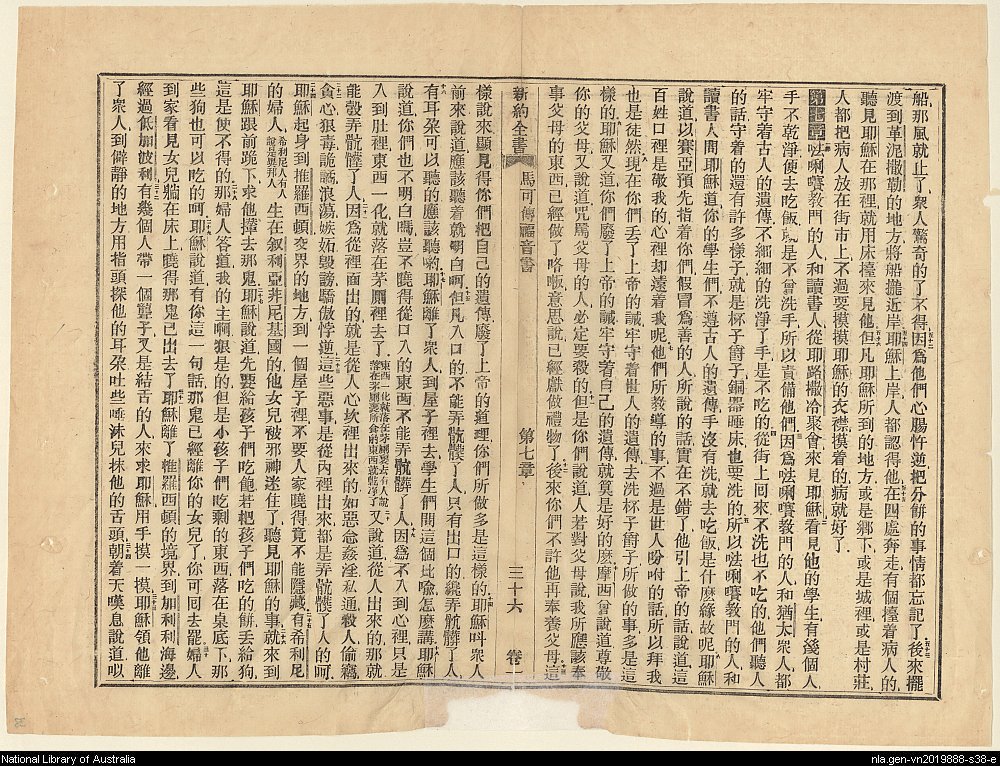 船那風就止了衆人驚奇的了不得因爲他們心腸忤逆把分餅的事情都忘記了後來擺
渡到革泥撒勒的地方將船攏近岸耶穌上岸人都認得他在四處奔走有個擡着病人的
聽見耶穌在那裡就用床擡來見他但凡耶穌所到的地方或是鄉下或是城裡或是村莊
人都把病人放在街市上不過要摸摸耶穌的衣襟摸着的病就好了
第七章㖿唎㘔教門的人和讀書人從耶路撒冷聚會來見耶穌看見他的學生有幾個人
手不乾淨便去吃飯就是不曾洗手所以責備他們因爲㖿唎㘔教門的人和猶太衆人都
牢守着古人的遺傳不細細的洗淨了手是不吃的從街上囘來不洗也不吃的他們聽人
的話守着的還有許多樣子就是杯子爵子銅器睡床也要洗的所以㖿唎㘔教門的人和
讀書人問耶穌道你的學生們不遵古人的遺傳手沒有洗就去吃飯是什麼緣故呢耶穌
說道以賽亞預先指着你們假冒爲善的人所說的話實在不錯了他引上帝的話說道這
百姓口裡是敬我的心裡却遠着我呢他們所敎導的事不過是世人吩咐的話所以拜我
也是徒然現在你們丢了上帝的誡牢守着世人的遺傳去洗杯子爵子所做的事多是這
樣的耶穌又道你們廢了上帝的誡牢守着自己的遺傳就算是好的麼摩西曾說道尊敬
你的父母又說道咒罵父母的人必定要殺的但是你們說道人若對父母說我所應該奉
事父母的東西已經做了咯嘣意思說已經獻做禮物了後來你們不許他再奉養父母這
新約全書 馬可傳福音書 第七章 三十六 卷一
樣說來顯見得你們把自己的遺傳廢了上帝的道理你們所做多是這樣的耶穌呌衆人
前來說道應該聽着就明白呵但凡入口的不能弄骯髒了人只有出口的纔弄骯髒了人
有耳朶可以聽的應該聽喲耶穌離了衆人到屋子裡去學生們問這個比喻怎麼講耶穌
說道你們也不明白嗎豈不曉得從口入的東西不能弄骯髒了人因爲不入到心裡只是
入到肚裡東西一化就落在茅厠裡去了東西一化就落在茅厠裡去有人說落在茅厠裡所食的東西就乾淨了又說道從人出來的那就
能彀弄骯髒了人因爲從裡面出的就是從人心坎裡出來的如惡念姦淫私通殺人偷竊
貪心狠毒詭譎浪蕩嫉妬毀謗驕傲悖逆這些惡事是從內裡出來都是弄骯髒了人的呵
耶穌起身到推羅西頓交界的地方到一個屋子裡不要人家曉得竟不能隱藏有希利尼
的婦人希利尼人有人說是異邦人生在叙利亞非尼基國的他女兒被邪神迷住了聽見耶穌的事就來到
耶穌跟前跪下求他攆去那鬼耶穌說道先要給孩子們吃飽若把孩子們吃的餅丢給狗
這是使不得的那婦人答道我的主啊狠是的但是小孩子們吃剩的東西落在桌底下那
些狗也可以吃的呵耶穌說道有你這一句話那鬼已經離你的女兒了你可囘去罷婦人
到家看見女兒躺在床上曉得那鬼已出去了耶穌離了推羅西頓的境界到加利利海邊
經過低加波利有幾個人帶一個聾子又是結舌的人來求耶穌用手摸一摸耶穌領他離
了衆人到僻靜的地方用指頭探他的耳朶吐些唾沫兒抹他的舌頭朝着天嘆息說道以
National Library of Australia
nla.gen-vn2019888-s38-e